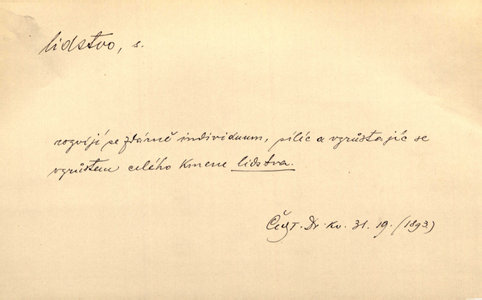 lidstvo, s.
rozvíjí se zdárně individuum, pílíc a vzrůstajíc se
vzrůstem celého kmene lidstva.
Kv. 31. 19. (1893)